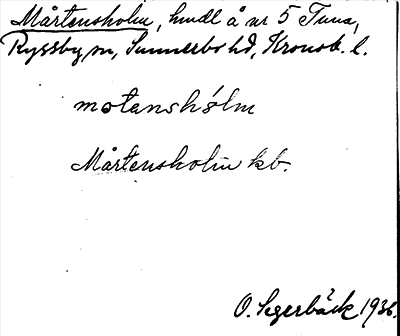 Mårtensholm, hmdl å nr 5 Tuna,
Ryssby sn, Sunnerbo hd, Kronob. l.
motanshólm
Mårtensholm kb.
O. Segerbäck 1936.